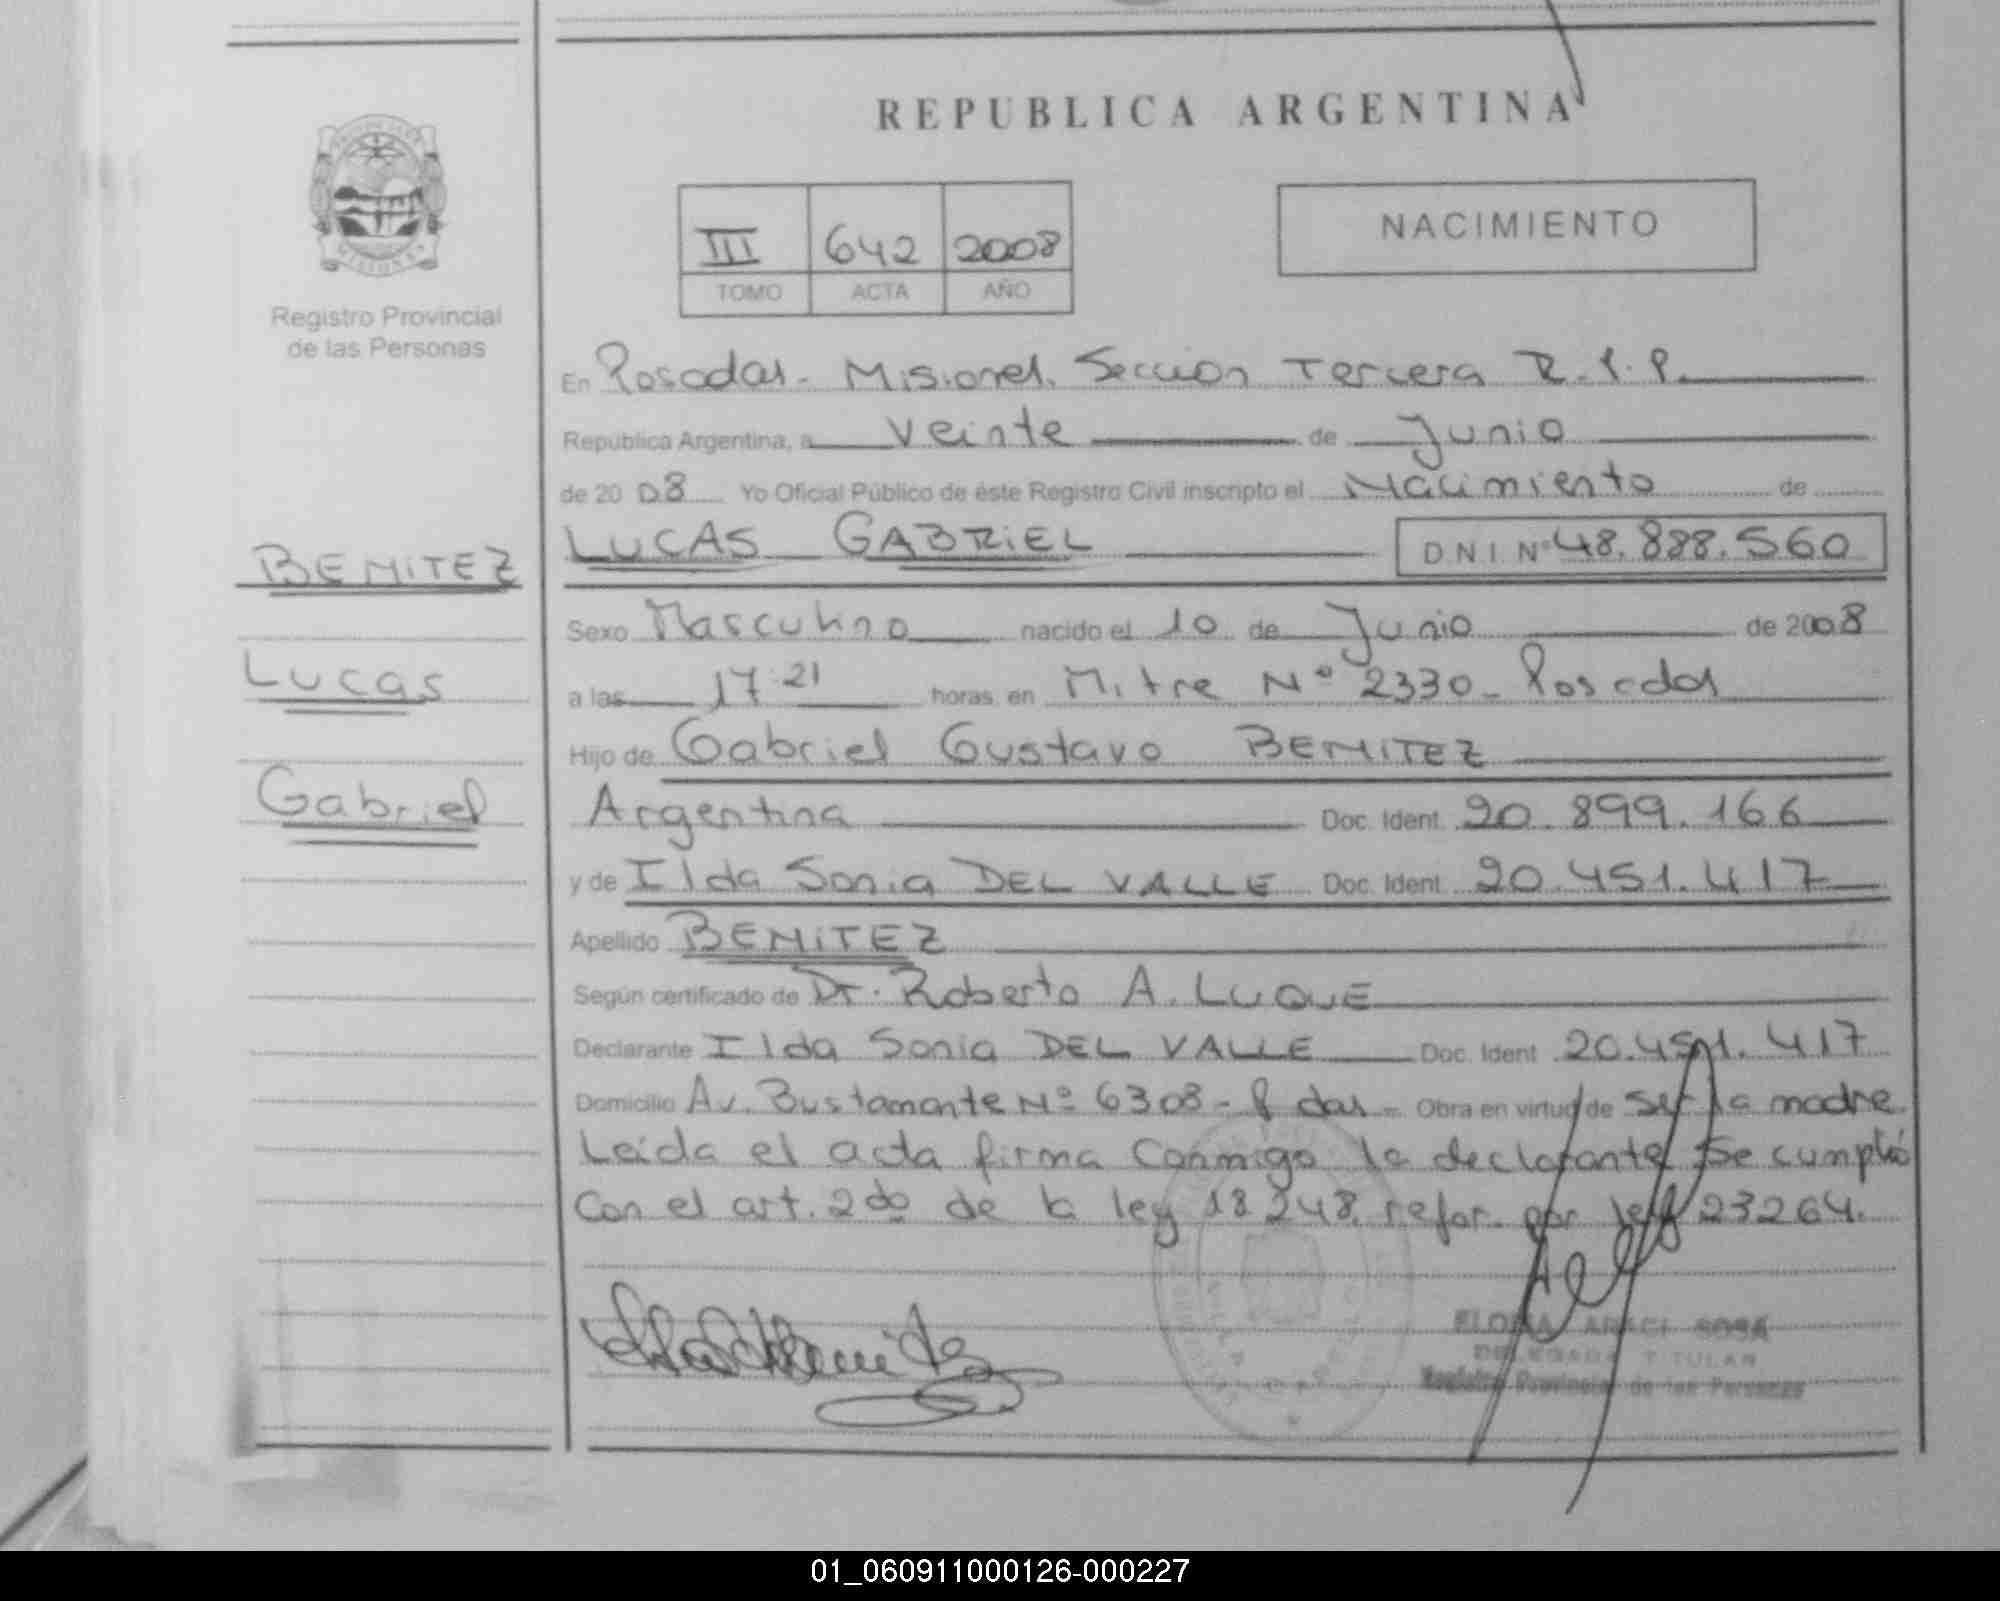 REPUBLICA ARGENTINA
III 642 2008
TOMO ACTA AÑO
NACIMIENTO
Registro Provincial
de las Personas
BENITEZ
Lucas
Gabriel
En Posadas - Misiones. Seccion Tercera R.P.P.
República Argentina, a veinte de Junio
de 20 08 Yo Oficial Público de éste Registro Civil inscripto el Nacimiento de
LUCAS GABRIEL D.N.I. Nº 48.888.560
Sexo Masculino nacido el 10 de Junio de 2008
a las 17:21 horas, en Mitre Nº 2330 - Posadas
Hijo de Gabriel Gustavo BENITEZ
Argentina Doc. Ident. 20.899.166
y de Ilda Sonia DEL VALLE Doc. Ident. 20.451.417
Apellido BENITEZ
Según certificado de Dr. Roberto A. LUQUE
Declarante Ilda Sonia DEL VALLE Doc. Ident. 20.451.417
Domicilio Av. Bustamante Nº 6308 - Pdas - Obra en virtud de ser la madre.
Leída el acta firma conmigo la declarante Se cumplió
Con el art. 2do de la ley 18.248. refor. por ley 23264.
SOSA
DELEGADA TITULAR
Registro Provincial de las Personas
01_060911000126-000227